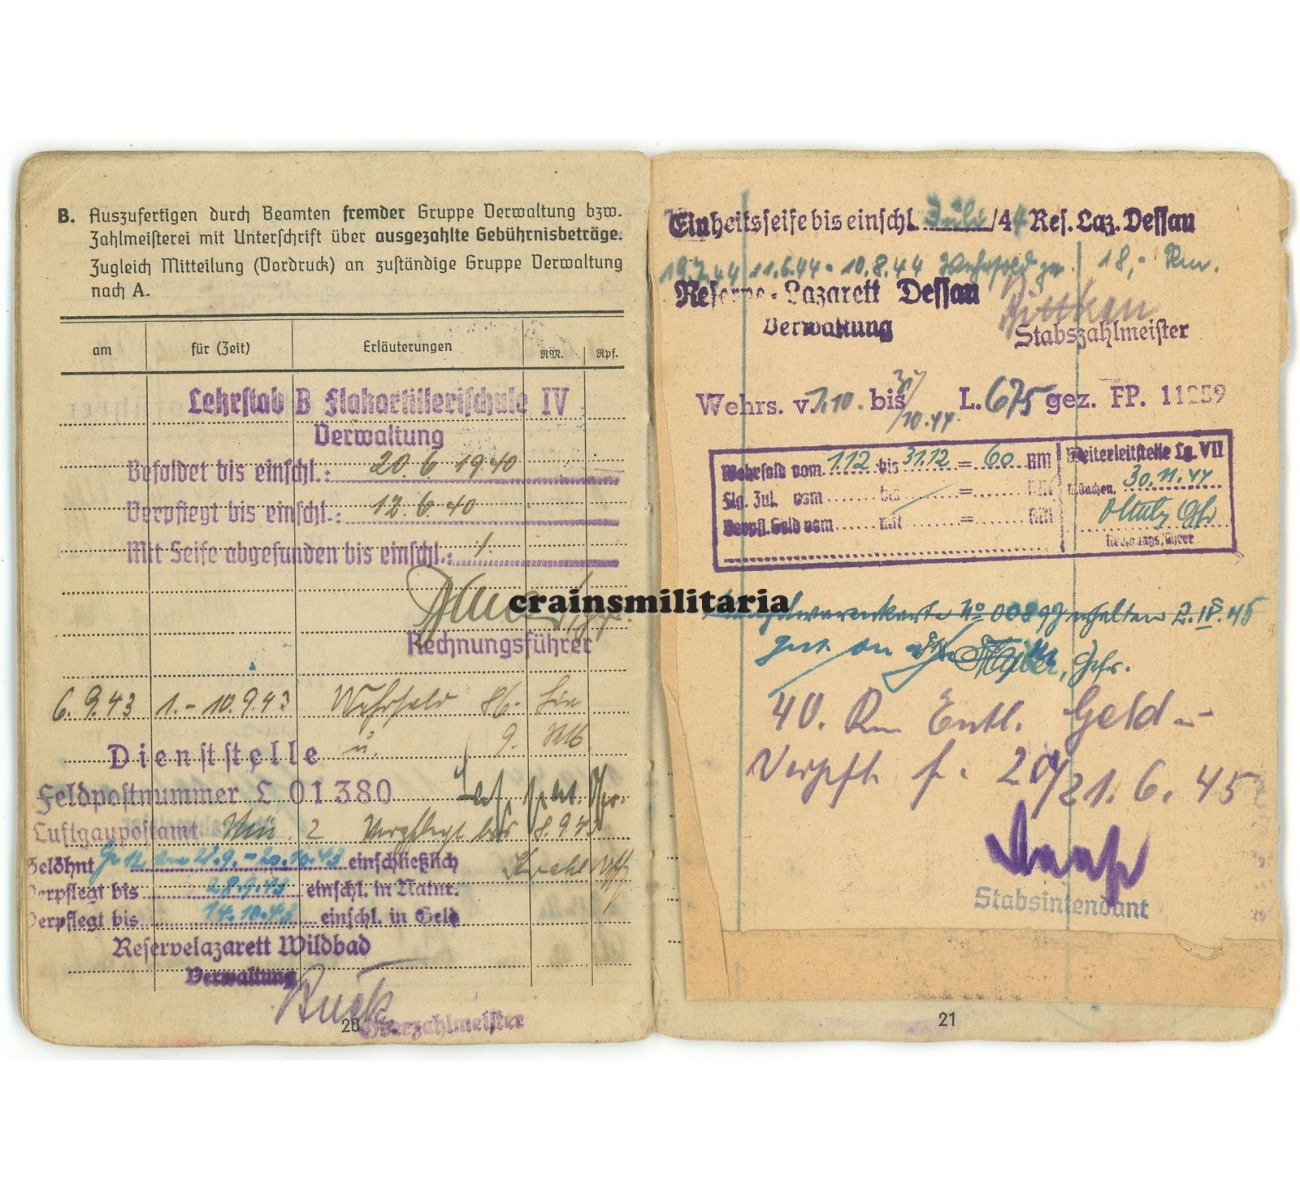 B. Auszufertigen durch Beamten fremder Gruppe Verwaltung bzw.
Zahlmeisterei mit Unterschrift über ausgezahlte Gebührnisbeträge.
Zugleich Mitteilung (Vordruck) an zuständige Gruppe Verwaltung
nach A.
am für (Zeit) Erläuterungen RM. Rpf.
Lehrstab B Flakartillerieschule IV
Verwaltung
Besoldet bis einschl.: 20 6 1940
Verpflegt bis einschl.: 12 6 40
Mit Seife abgefunden bis einschl.: 1.
Rechnungsführer
6.9.43 1.-10.9.43 Wehrsold 86.-
u. 9.
Dienststelle
Feldpostnummer L 01380
Luftgaupostamt Mü. 2 Verpflegt bis 8.9.43
Gelöhnt 21.9.-20.10.43 einschließlich
Verpflegt bis 28.9.43 einschl. in Natur.
Verpflegt bis 14.10.43 einschl. in Geld
Reservelazarett Wildbad
Verwaltung
Oberzahlmeister
20
Einheitsseife bis einschl. Juli /44 Res. Laz. Dessau
19.7.44 11.6.44 - 10.8.44 Wehrsold 18,- Rm.
Reserve-Lazarett Dessau
Verwaltung
Stabszahlmeister
Wehrs. v. 1.10. bis 31/10.44 L. 675 gez. FP. 11259
Wehrsold vom 1.12 bis 31.12 = 60 RM
Weiterleitstelle Lg. VII
Slg. Zul. vom bis = RM
München, 30.11.44
Verpfl.Geld vom mit = RM
Rechnungsführer
crainsmilitaria
No 00899 erhalten 2.IV.45
Gefr.
40. Rm Entl. Geld -
Verpfl. f. 20/21.6.45
Stabsintendant
21